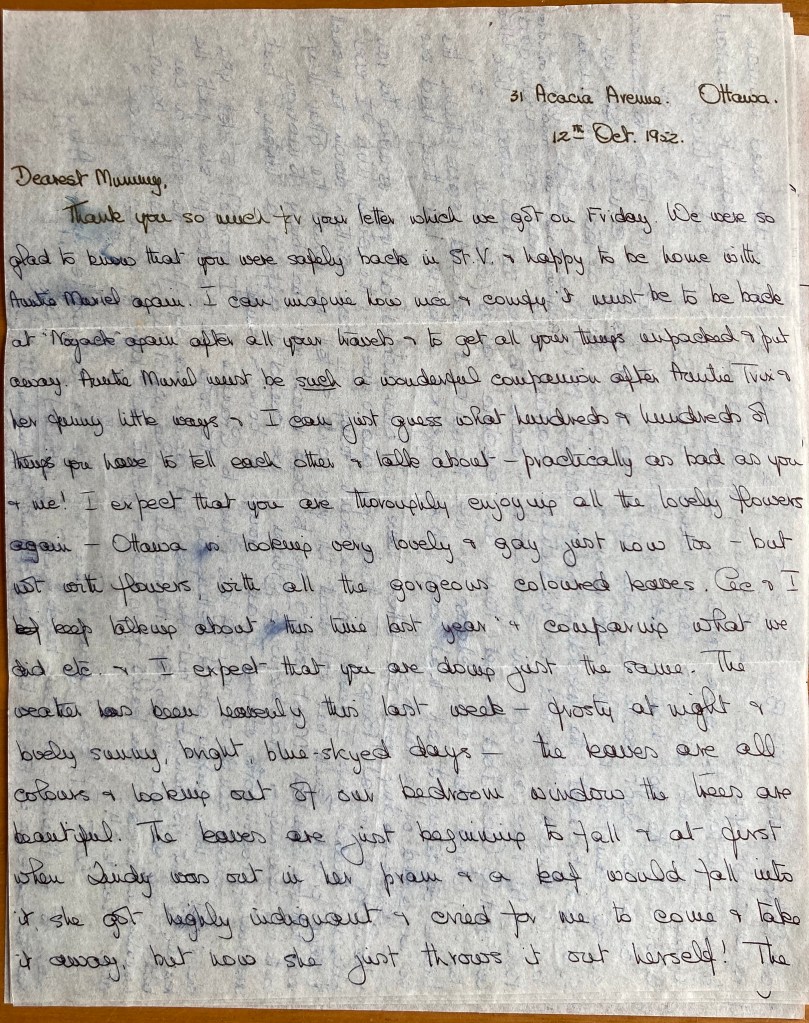 31 Acacia Avenue. Ottawa.
12th Oct. 1952.
Dearest Mummy,
Thank you so much for your letter which we got on Friday. We were so
glad to know that you were safely back in St. V. & happy to be home with
Auntie Muriel again. I can imagine how nice & comfy it must be to be back
at "Noyack" again after all your travels & to get all your things unpacked & put
away. Auntie Muriel must be such a wonderful companion after Auntie Trix &
her funny little ways & I can just guess what hundreds & hundreds of
things you have to tell each other & talk about - practically as bad as you
& me! I expect that you are thoroughly enjoying all the lovely flowers
again - Ottawa is looking very lovely & gay just now too - but
not with flowers, with all the gorgeous coloured leaves. Cec & I
keep talking about "this time last year" & comparing what we
did etc. & I expect that you are doing just the same. The
weather has been heavenly this last week - frosty at night &
lovely sunny, bright, blue-skyed days - the leaves are all
colours & looking out of our bedroom window the trees are
beautiful. The leaves are just beginning to fall & at first
when Lindy was out in her pram & a leaf would fall into
it, she got highly indignant & cried for me to come & take
it away, but now she just throws it out herself! The